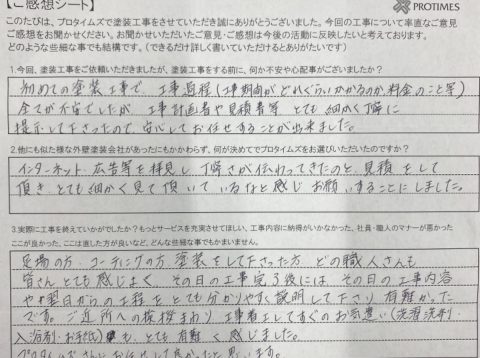 【ご感想シート】
PROTIMES
このたびは、プロタイムズで塗装工事をさせていただき誠にありがとうございました。今回の工事について率直なご意見
ご感想をお聞かせください。お聞かせいただいたご意見・ご感想は今後の活動に反映したいと考えております。
どのような些細な事でも結構です。(できるだけ詳しく書いていただけるとありがたいです)
1. 今回、塗装工事をご依頼いただきましたが、塗装工事をする前に、何か不安や心配事がございましたか?
初めての塗装工事で、工事過程(工事期間がどれぐらいかかるのか、料金のこと等)
全てが不安でしたが、工事計画書や見積書等、とても細かく丁寧に
提示して下さったので、安心してお任せすることが出来ました。
2. 他にも似た様な外壁塗装会社があったにもかかわらず、何が決めてでプロタイムズをお選びいただいたのですか?
インターネット、広告等を拝見し、丁寧さが伝わってきたのと、見積をして
頂き、とても細かく見て頂いているなと感じお願いすることにしました。
3. 実際に工事を終えていかがでしたか?もっとサービスを充実させてほしい、工事内容に納得がいかなかった、社員・職人のマナーが悪かった
ここが良かった、ここは直した方が良いなど、どんな些細な事でもかまいません。
足場の方、コーチングの方、塗装をして下さった方、どの職人さんも
皆さん、とても感じよく、その日の工事完了後には、その日の工事内容
や翌日からの工程をとても分かりやすく説明して下さり有難かった
です。ご近所への挨拶まわり、工事着工してすぐのお気遣い(洗濯洗剤・
入浴剤・お手紙)も、とても有難く感じました。
プロタイムズさんにお任せして良かったと思います。